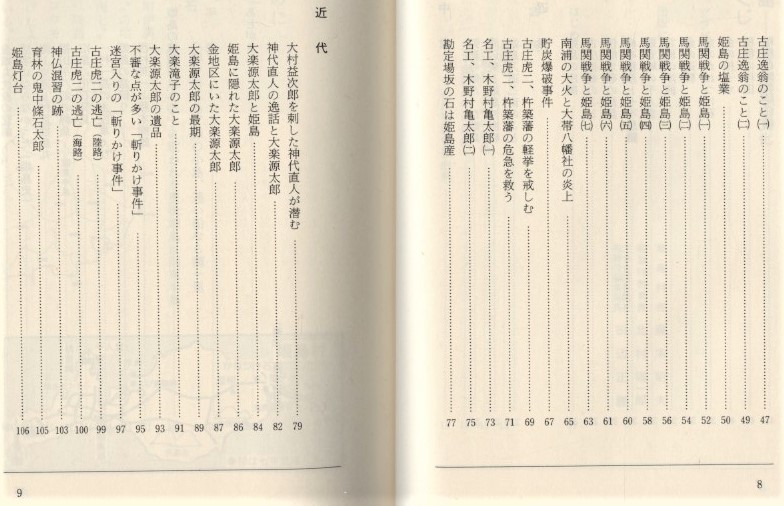 古庄逸翁のこと㈠ 47
古庄逸翁のこと㈡ 49
姫島の塩業 50
馬関戦争と姫島㈠ 52
馬関戦争と姫島㈡ 54
馬関戦争と姫島㈢ 56
馬関戦争と姫島㈣ 58
馬関戦争と姫島㈤ 60
馬関戦争と姫島㈥ 61
馬関戦争と姫島㈦ 63
南浦の大火と大帯八幡社の炎上 65
貯炭爆破事件 67
古庄虎二、杵築藩の軽挙を戒しむ 69
古庄虎二、杵築藩の危急を救う 71
名工、木野村亀太郎㈠ 73
名工、木野村亀太郎㈡ 75
勘定場坂の石は姫島産 77
8
近代
大村益次郎を刺した神代直人が潜む 79
神代直人の逸話と大楽源太郎 82
大楽源太郎と姫島 84
姫島に隠れた大楽源太郎 86
金地区にいた大楽源太郎 87
大楽源太郎の最期 89
大楽滝子のこと 91
大楽源太郎の遺品 93
不審な点が多い「斬りかけ事件」 95
迷宮入りの「斬りかけ事件」 97
古庄虎二の逃亡（陸路） 99
古庄虎二の逃亡（海路） 100
神仏混習の跡 103
育林の鬼中條石太郎 105
姫島灯台 106
9